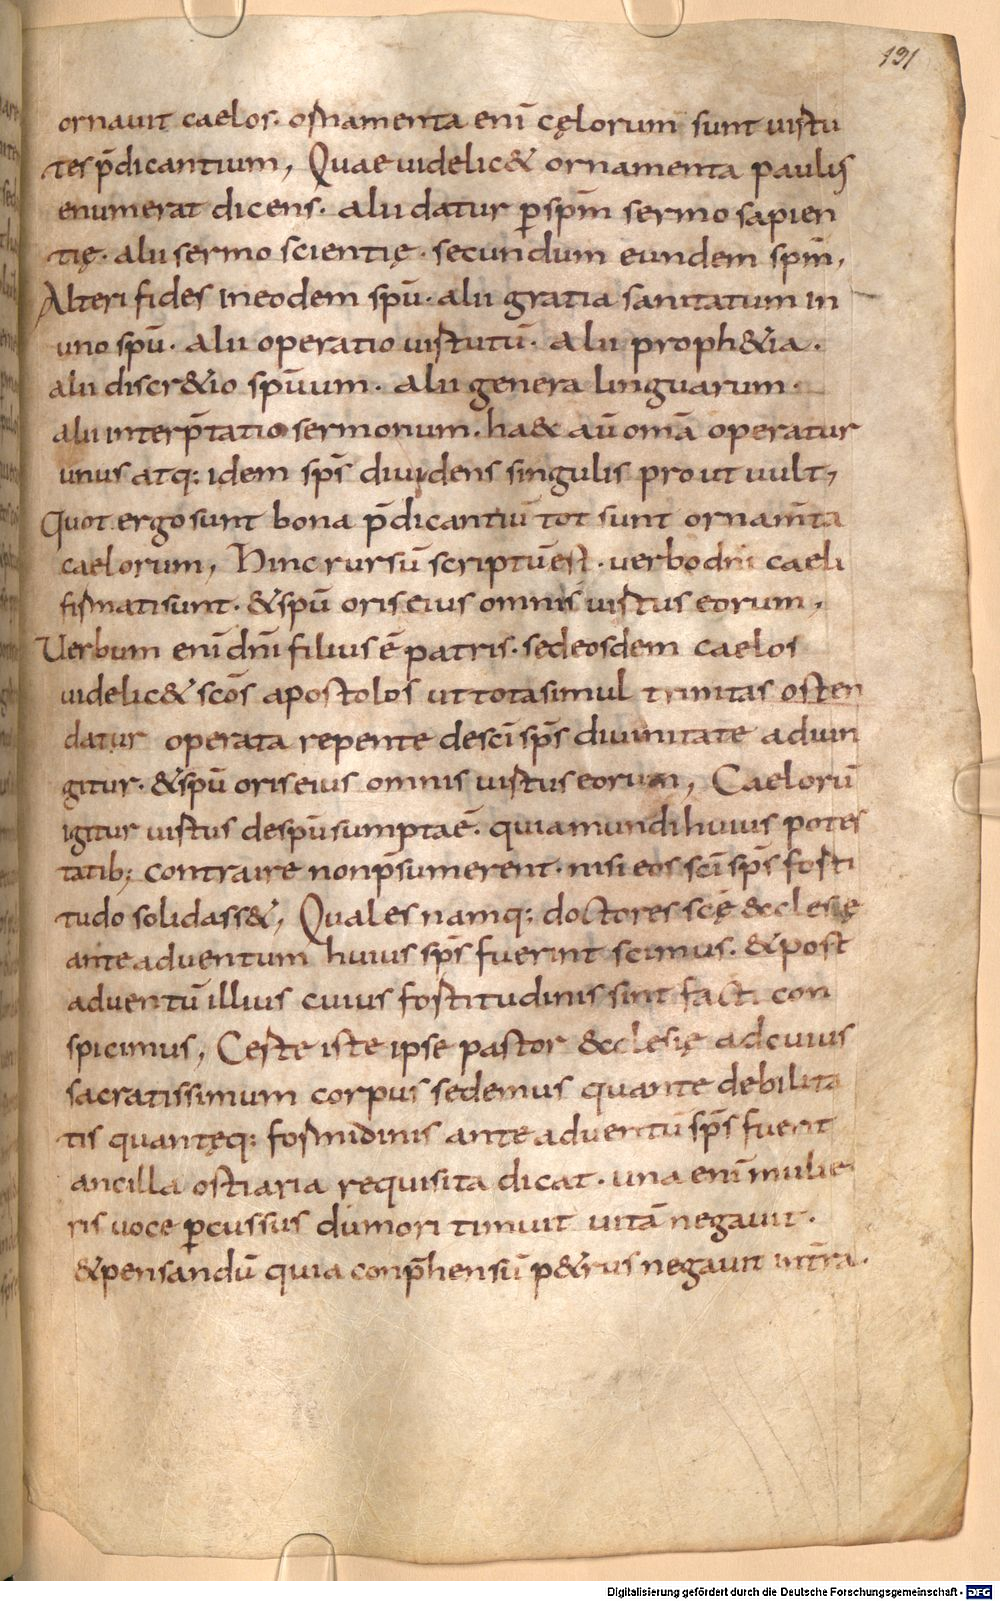 191
ornauit caelos. ornamenta eni̅ cęlorum sunt uirtu
tes p̅dicantium, Quae uidelic& ornamenta paulus
enumerat dicens. alii datur ꝑ sp̅m sermo sapien
tię. alii sermo scientię. secundum eundem sp̅m,
Alteri fides in eodem spu̅. alii gratia sanitatum in
uno spu̅. alii operatio uirtutu̅. alii proph&ia.
alii discr&io spi̅uum. alii genera linguarum.
alii interp̅tatio sermonum. ha&c au̅ om̅a operatur
unus atq; idem sp̅s diuidens singulis prout uult,
Quot ergo sunt bona p̅dicantiu̅ tot sunt ornam̅ta
caelorum, Hinc rursu̅ scriptu̅ est. uerbo dn̅i caeli
firmati sunt. & spu̅ oris eius omnis uirtus eorum,
Uerbum eni̅ dn̅i filius e̅ patris. sed eosdem caelos
uidelic& sc̅os apostolos ut tota simul trinitas osten
datur operata repente de sc̅i sp̅s diuinitate adiun
gitur. & spu̅ oris eius omnis uirtus eorum, Caeloru̅
igitur uirtus de spu̅ sumpta e̅. quia mundi huius potes
tatib; contraire non p̅sumerent. nisi eos sc̅i sp̅s forti
tudo solidass&, Quales namq; doctores sc̅ę &cclesię
ante aduentum huius sp̅s fuerint scimus. & post
aduentu̅ illius cuius fortitudinis sint facti con
spicimus, Certe iste ipse pastor &cclesię ad cuius
sacratissimum corpus sedemus quante debilita
tis quantęq; formidinis ante aduentu̅ sp̅s fuerit
ancilla ostiaria requisita dicat. una eni̅ mulie
ris uoce ꝑcussus du̅ mori timuit uita̅ negauit.
& pensandu̅ quia conp̅hensu̅ p&rus negauit in t̅ra.
Digitalisierung gefördert durch die Deutsche Forschungsgemeinschaft - DFG